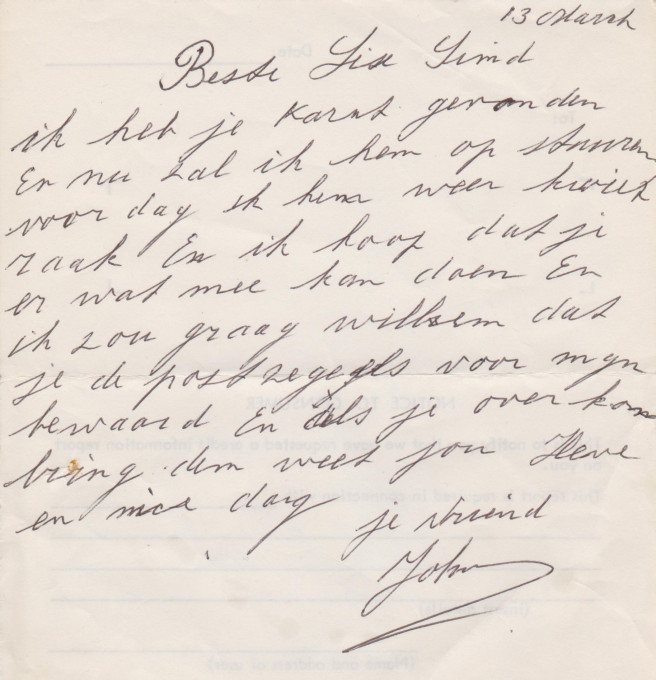 13 March
Beste Lise Lind
ik heb je Karnt gevonden
En nu zal ik hem op sturen
voor dag ik hem weer kwiet
raak En ik hoop dat je
er wat mee kan doen En
ik zou graag willsem dat
je de postzegegels voor myn
bewaard En als je over kom
bring dem weet jou Heve
en nice day
je vriend
John